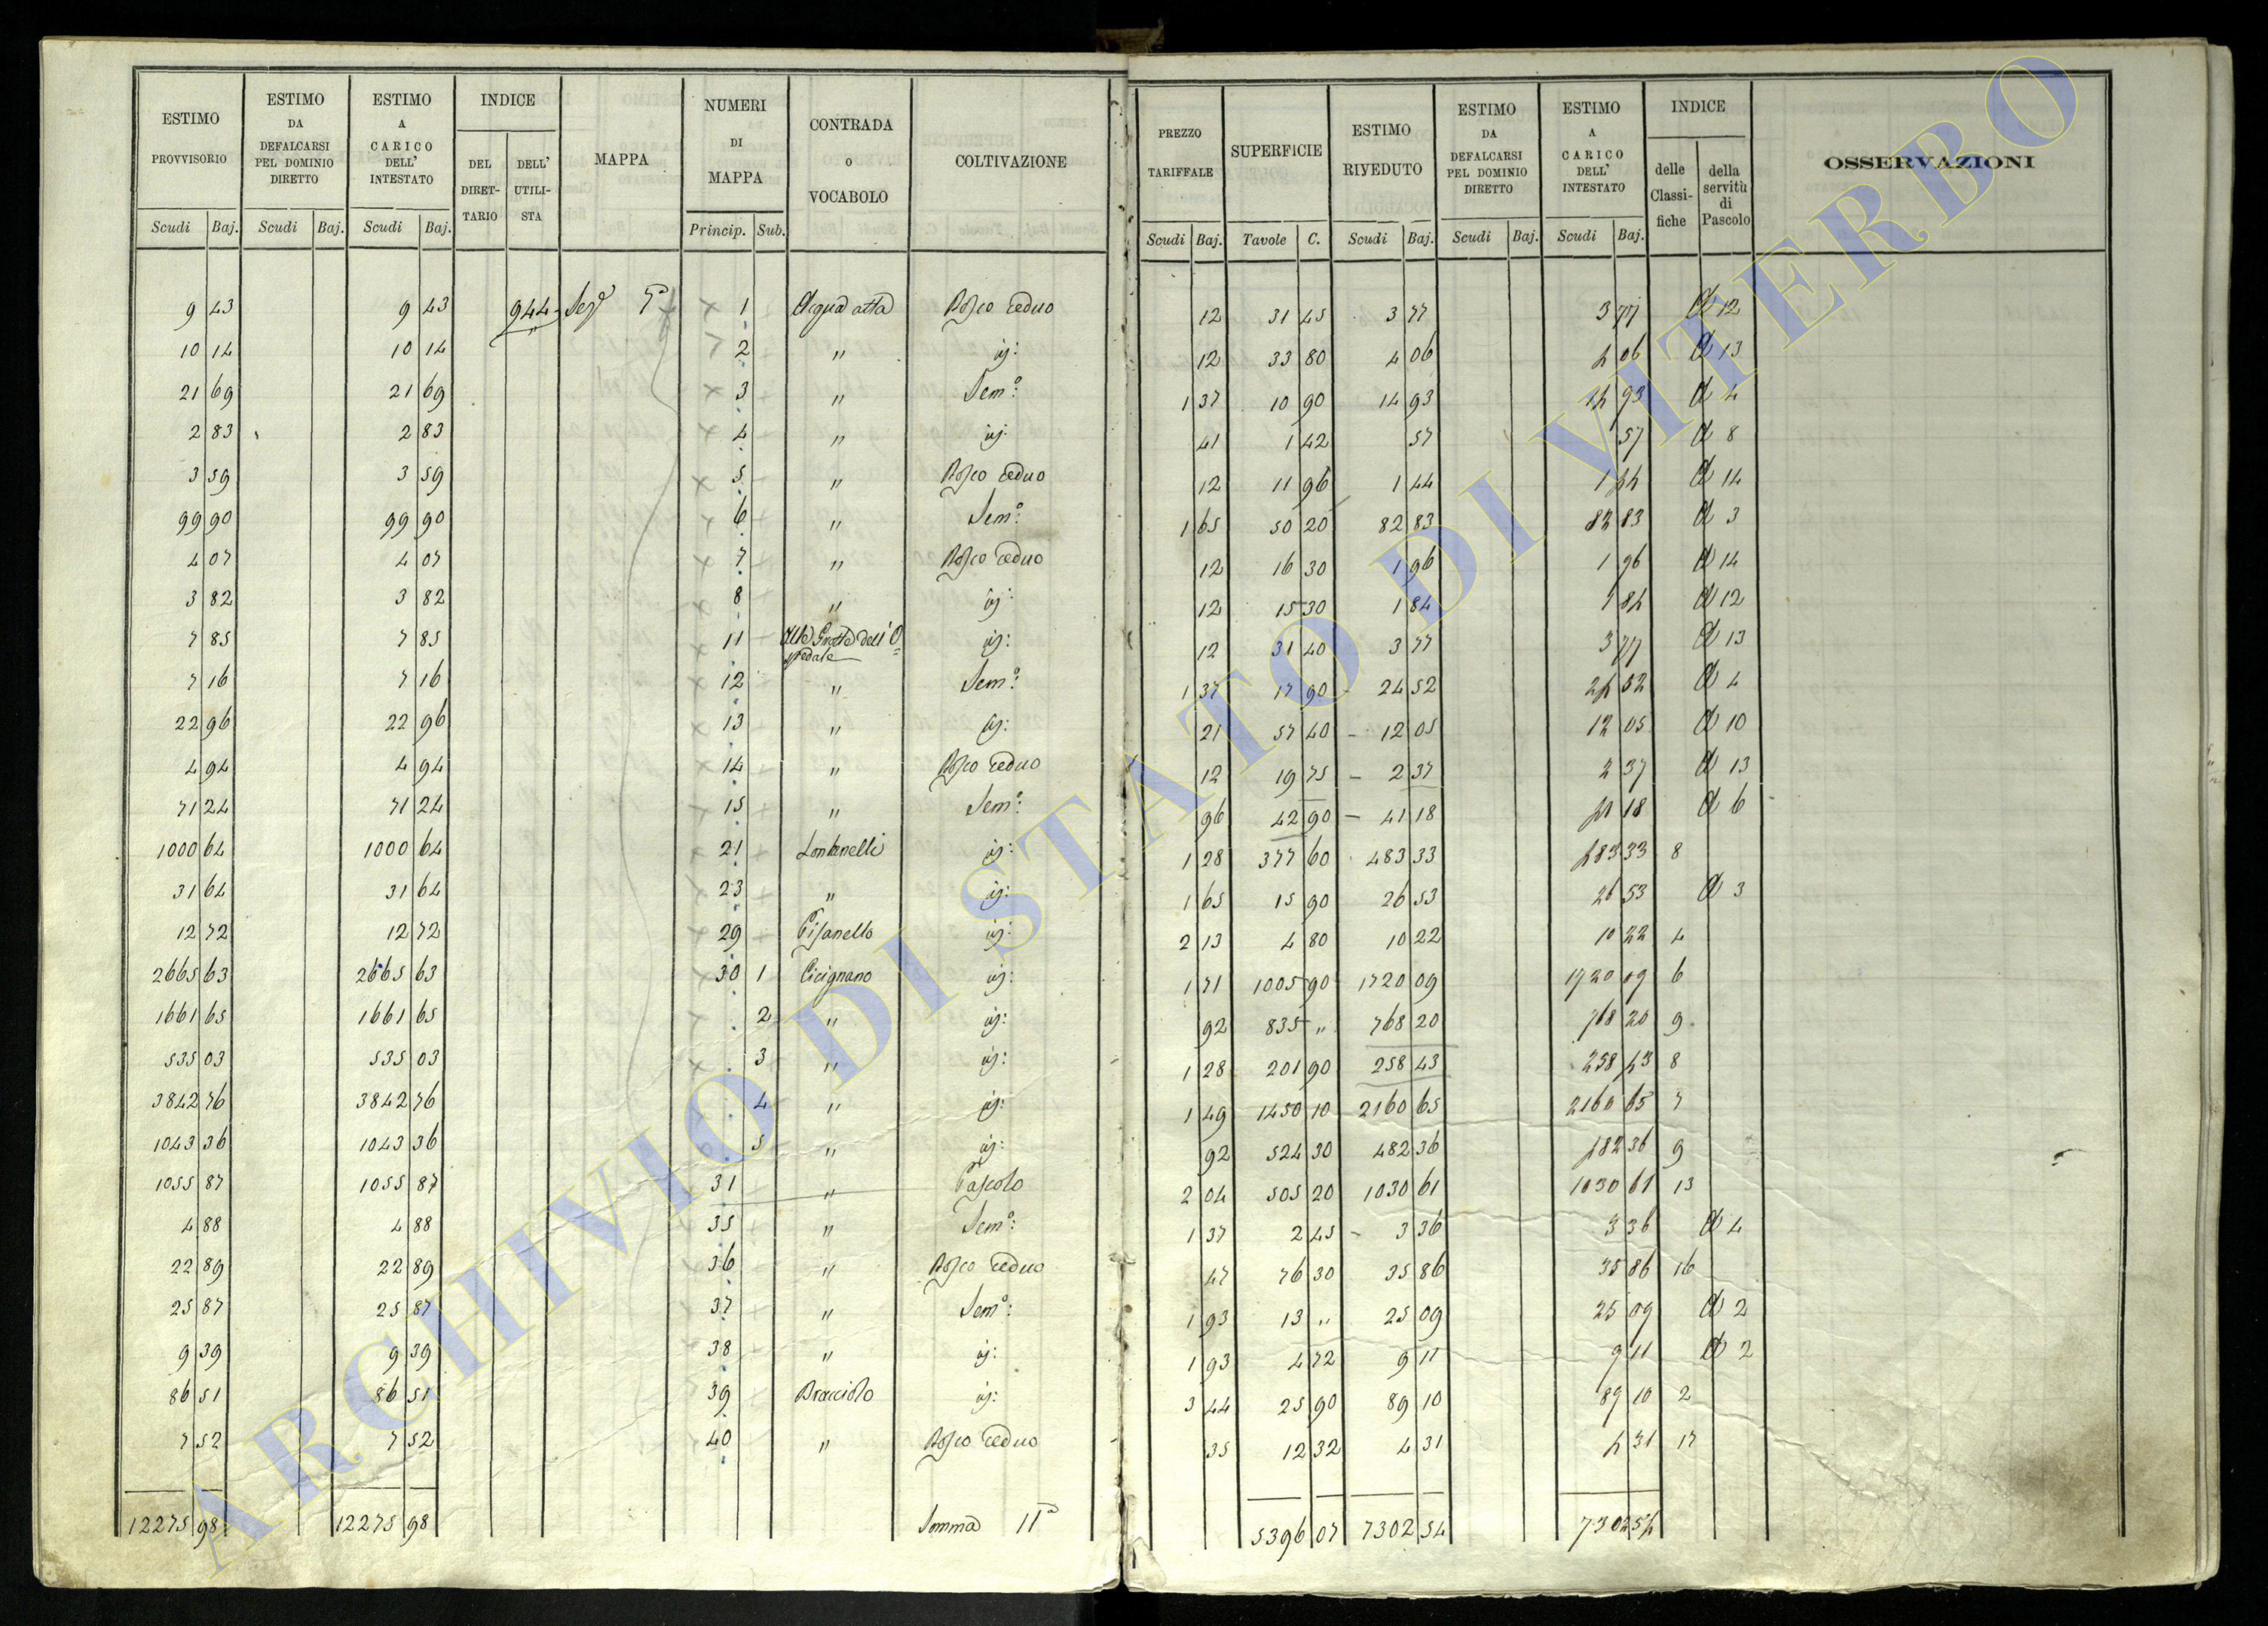 ESTIMO PROVVISORIO Scudi Baj. | ESTIMO DA DEFALCARSI PEL DOMINIO DIRETTO Scudi Baj. | ESTIMO A CARICO DELL' INTESTATO Scudi Baj. | INDICE DEL DIRETTARIO DELL' UTILISTA | MAPPA | NUMERI DI MAPPA Princip. Sub. | CONTRADA O VOCABOLO | COLTIVAZIONE | PREZZO TARIFFALE Scudi Baj. | SUPERFICIE Tavole C. | ESTIMO RIVEDUTO Scudi Baj. | ESTIMO DA DEFALCARSI PEL DOMINIO DIRETTO Scudi Baj. | ESTIMO A CARICO DELL' INTESTATO Scudi Baj. | INDICE delle Classifiche della servitù di Pascolo | OSSERVAZIONI
9 43 | 9 43 | 944 | Seg.e | 1 | Acqua atta | Bosco ceduo | 12 | 31 45 | 3 77 | 3 77 | A 12
10 14 | 10 14 | 2 | " | ig: | 12 | 33 80 | 4 06 | 4 06 | A 13
21 69 | 21 69 | 3 | " | Sem.o: | 1 37 | 10 90 | 14 93 | 14 93 | A 4
2 83 | 2 83 | 4 | " | ig: | 41 | 1 42 | 57 | 57 | A 8
3 59 | 3 59 | 5 | " | Bosco ceduo | 12 | 11 96 | 1 44 | 1 44 | A 14
99 90 | 99 90 | 6 | " | Sem.o: | 1 65 | 50 20 | 82 83 | 82 83 | A 3
4 07 | 4 07 | 7 | " | Bosco ceduo | 12 | 16 30 | 1 96 | 1 96 | A 14
3 82 | 3 82 | 8 | " | ig: | 12 | 15 30 | 1 84 | 1 84 | A 12
7 85 | 7 85 | 11 | Alla Grotta dell'O=spedale | ig: | 12 | 31 40 | 3 77 | 3 77 | A 13
7 16 | 7 16 | 12 | " | Sem.o: | 1 37 | 17 90 | 24 52 | 24 52 | A 4
22 96 | 22 96 | 13 | " | ig: | 21 | 57 40 | 12 05 | 12 05 | A 10
4 94 | 4 94 | 14 | " | Bosco ceduo | 12 | 19 75 | 2 37 | 2 37 | A 13
71 24 | 71 24 | 15 | " | Sem.o: | 96 | 42 90 | 41 18 | 41 18 | A 6
1000 64 | 1000 64 | 21 | Lontanelli | ig: | 1 28 | 377 60 | 483 33 | 483 33 | 8
31 64 | 31 64 | 23 | " | ig: | 1 65 | 15 90 | 26 53 | 26 53 | A 3
12 72 | 12 72 | 29 | Pisanello | ig: | 2 13 | 4 80 | 10 22 | 10 22 | 4
2665 63 | 2665 63 | 30 1 | Cicignano | ig: | 1 71 | 1005 90 | 1720 09 | 1720 09 | 6
1661 65 | 1661 65 | 2 | " | ig: | 92 | 835 " | 768 20 | 768 20 | 9
535 03 | 535 03 | 3 | " | ig: | 1 28 | 201 90 | 258 43 | 258 43 | 8
3842 76 | 3842 76 | 4 | " | ig: | 1 49 | 1450 10 | 2160 65 | 2160 65 | 7
1043 36 | 1043 36 | 5 | " | ig: | 92 | 524 30 | 482 36 | 482 36 | 9
1055 87 | 1055 87 | 31 | " | Pascolo | 2 04 | 505 20 | 1030 61 | 1030 61 | 13
4 88 | 4 88 | 35 | " | Sem.o: | 1 37 | 2 45 | 3 36 | 3 36 | A 4
22 89 | 22 89 | 36 | " | Bosco ceduo | 47 | 76 30 | 35 86 | 35 86 | 16
25 87 | 25 87 | 37 | " | Sem.o: | 1 93 | 13 " | 25 09 | 25 09 | A 2
9 39 | 9 39 | 38 | " | ig: | 1 93 | 4 72 | 9 11 | 9 11 | A 2
86 51 | 86 51 | 39 | Bracciolo | ig: | 3 44 | 25 90 | 89 10 | 89 10 | 2
7 52 | 7 52 | 40 | " | Bosco ceduo | 35 | 12 32 | 4 31 | 4 31 | 17
12275 98 | 12275 98 | Somma IIa | 5396 07 | 7302 54 | 7302 54
ARCHIVIO DI STATO DI VITERBO